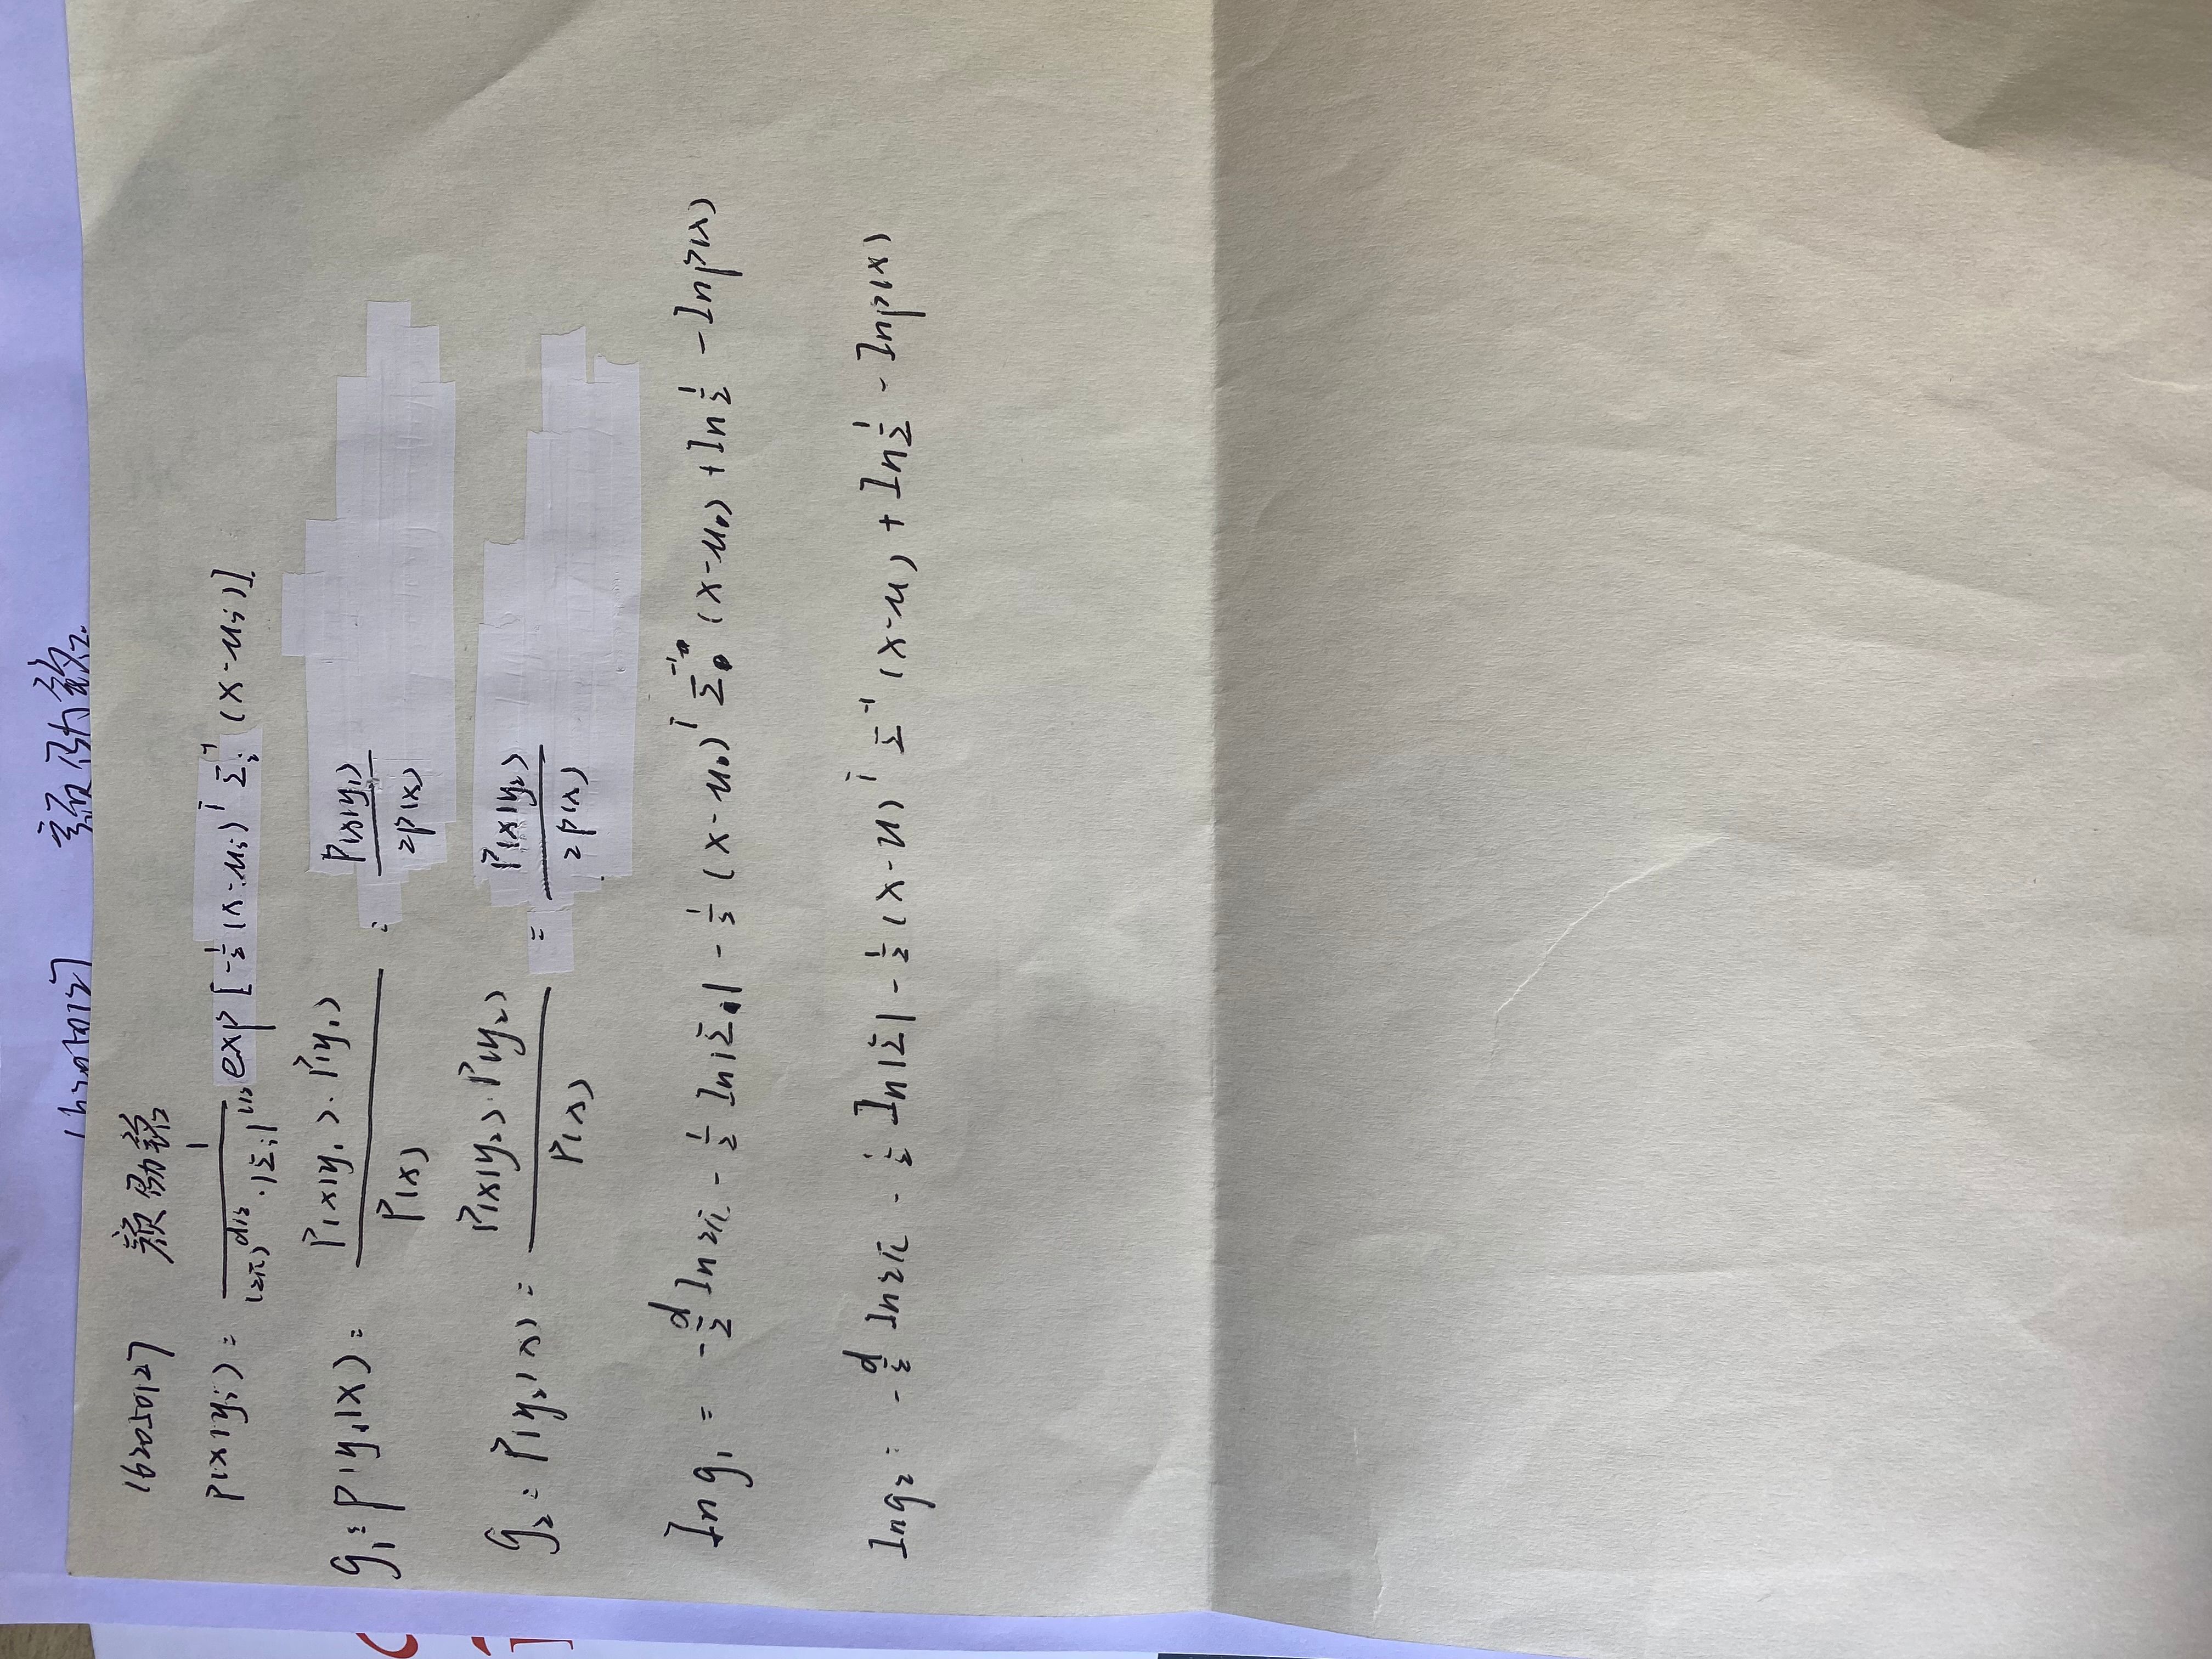 16205127 颜勋銘
P(x|yᵢ) = 1/((2π)^(d/2)·|Σᵢ|^(1/2)) exp[-1/2(x-uᵢ)ᵀ Σᵢ⁻¹ (x-uᵢ)]
g₁ = P(y₁|x) = P(x|y₁)·P(y₁)/P(x) = P(x|y₁)/2P(x)
g₂ = P(y₂|x) = P(x|y₂)·P(y₂)/P(x) = P(x|y₂)/2P(x)
ln g₁ = -d/2 ln2π - 1/2 ln|Σ₀| - 1/2 (x-u₀)ᵀ Σ₀⁻¹ (x-u₀) + ln 1/2 - lnp(x)
ln g₂ = -d/2 ln2π - 1/2 ln|Σ| - 1/2 (x-u)ᵀ Σ⁻¹ (x-u) + ln 1/2 - lnp(x)